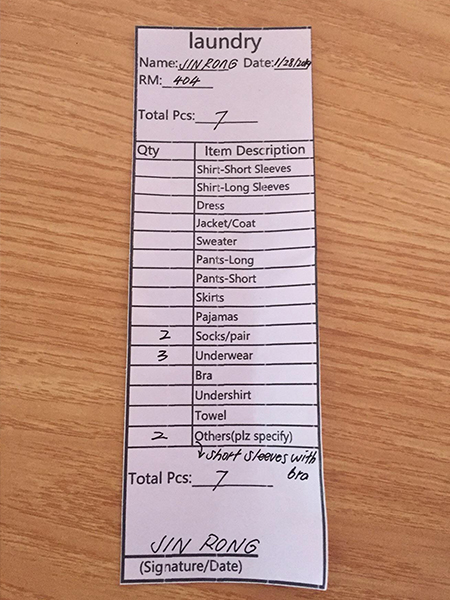 laundry
Name: JIN RONG Date: 1/28/2019
RM: 404
Total Pcs: 7
Qty Item Description
Shirt-Short Sleeves
Shirt-Long Sleeves
Dress
Jacket/Coat
Sweater
Pants-Long
Pants-Short
Skirts
Pajamas
2 Socks/pair
3 Underwear
Bra
Undershirt
Towel
2 Others(plz specify)
↳ short sleeves with
bra
Total Pcs: 7
JIN RONG
(Signature/Date)